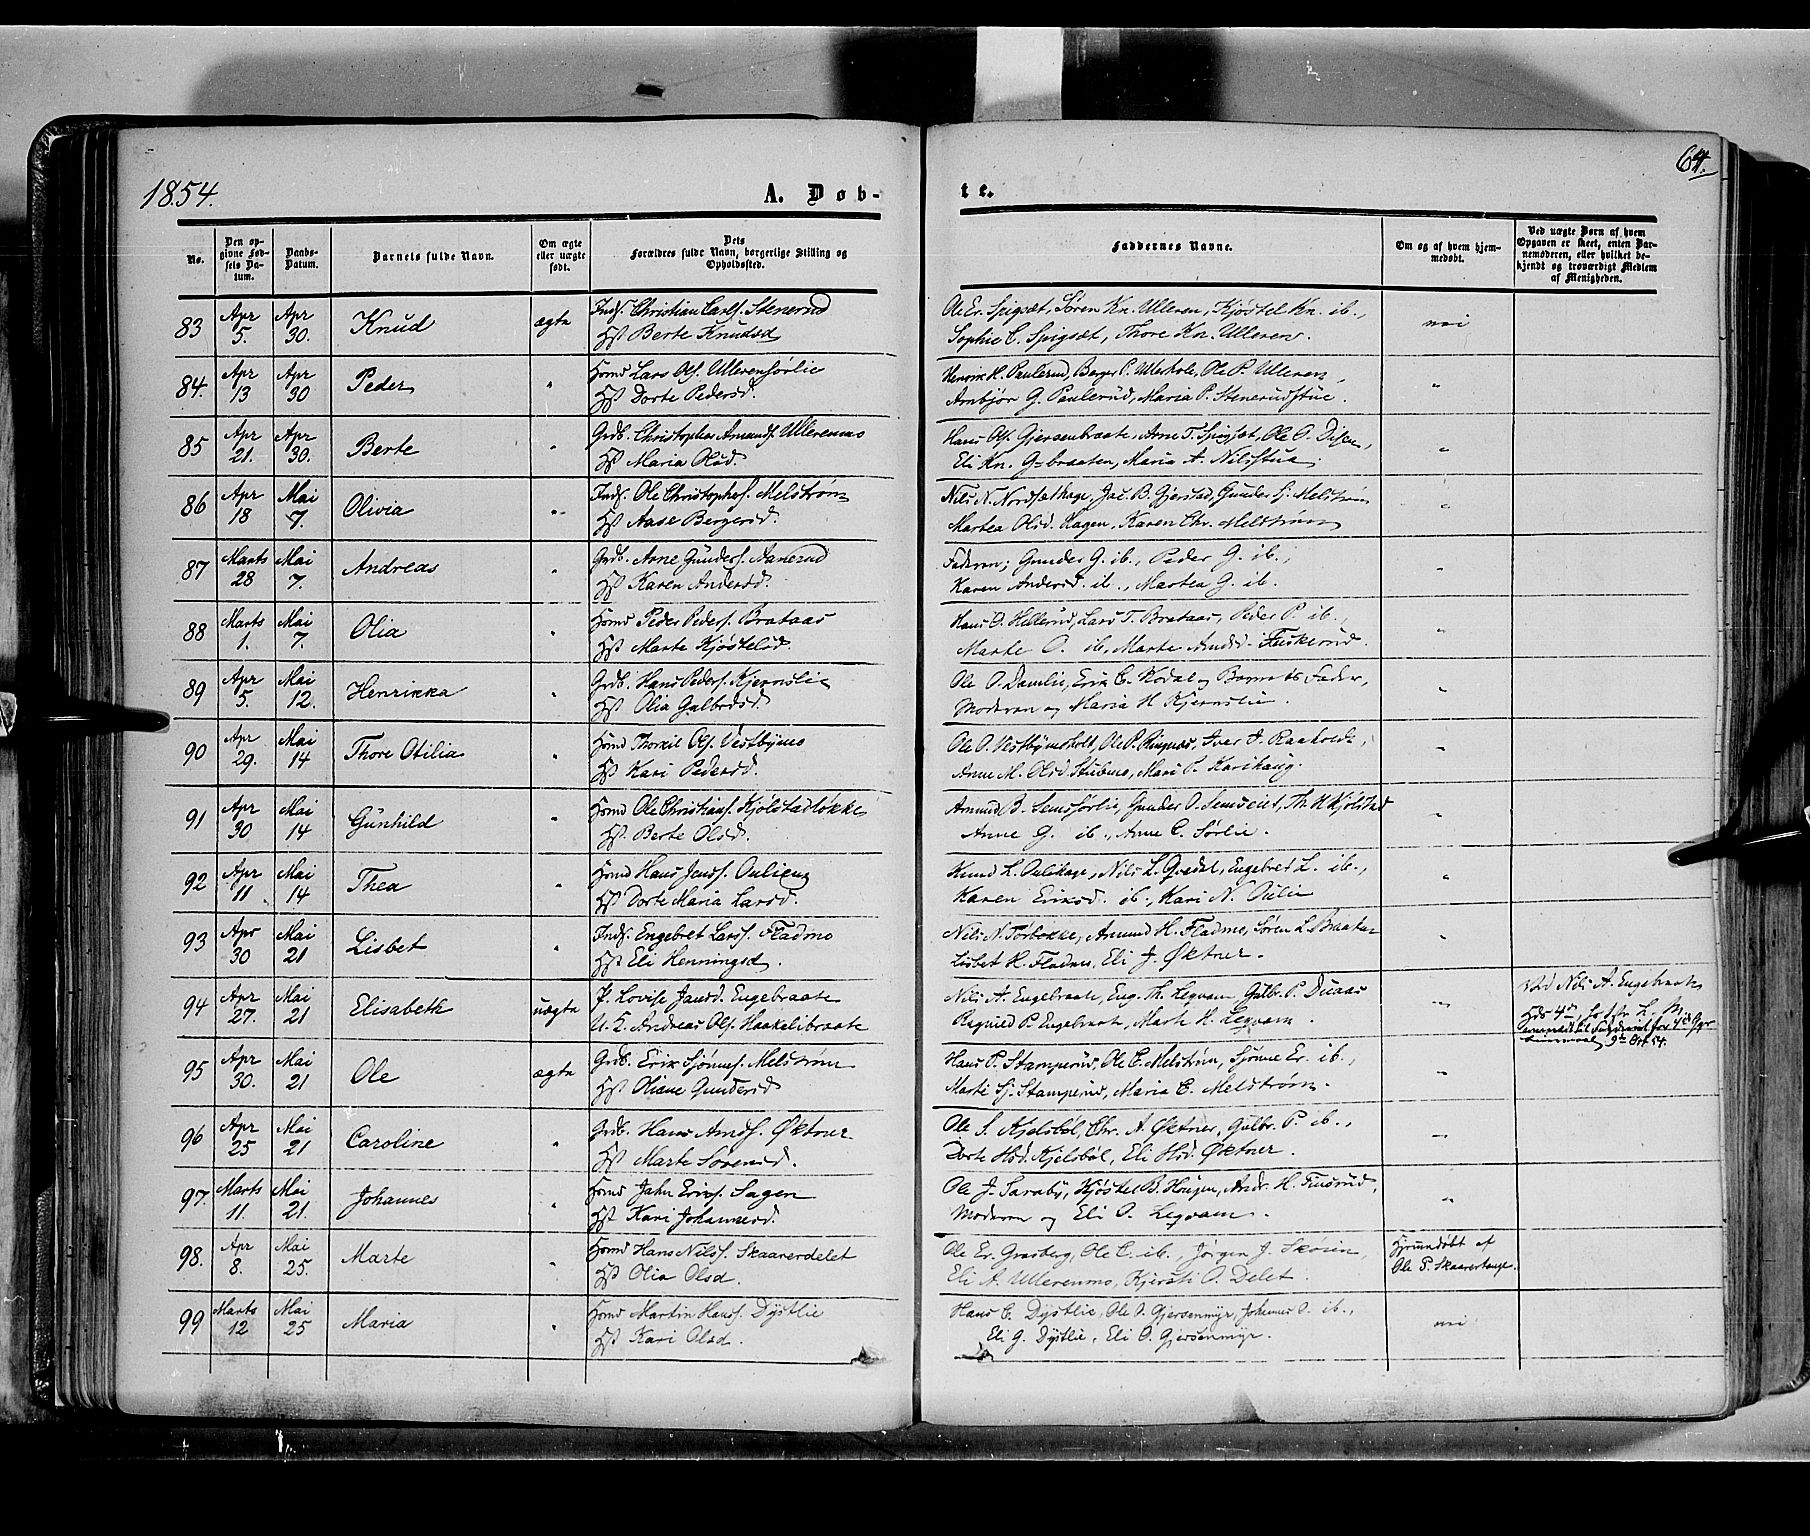 1854.
A. Døb-
te.
64.
No.
Den op-
givne Fød-
sels Da-
tum.
Daabs-
Datum.
Barnets fulde Navn.
Om ægte
eller uægte
født.
Dets
Forældres fulde Navn, borgerlige Stilling og
Opholdssted.
Faddernes Navne.
Om og af hvem hjem-
medøbt.
Ved uægte Børn af hvem
Opgaven er skeet, enten Bar-
nemoderen, eller hvilket be-
kjendt og troværdigt Medlem
af Menigheden.
83 Apr 5. Apr 30. Knud ægte Inds. Christian Carls. Stenerud
Hst Berte Knudsd
Ole Er. Spigset, Søren Kn. Ulleren, Kjøstel Kn. ib.,
Sophie C. Spigset, Thore Kn. Ulleren.
nei
84. Apr 13 Apr 30 Peder " Hsmd Lars Ols. Ullerensørlie
Hst Dorte Pedersd.
Henrik H. Paulerud, Berger P. Ole P. Ulleren,
Arnbjør G. Paulerud, Maria P. Stenerudstue. "
85 Apr 21. Apr 30. Berte " Grdb. Christopher Amunds. Ullerenmo
Hst Maria Olsd.
Hans Ols. Gjersenbraate, Arne T. Spigset, Ole O. Disen,
Eli Kn. G-braaten, Maria A. Nilsstua. "
86 Apr 18 Mai 7. Olivia " Inds. Ole Christophers. Melstrøm
Hst Aase Bergersd.
Nils N. Nordsethage, Jac. B. Gjerstad, Gunder Sj. Melstrøm
Martea Olsd. Hagen, Karen Chr. Melstrøm "
87 Marts 28 Mai 7. Andreas " Grdb. Arne Gunders. Aanerud
Hst Karen Andersd.
Faderen, Gunder G. ib., Peder G. ib.,
Karen Andersd. ib., Martea G. ib. "
88 Marts 1. Mai 7. Olia " Hsmd Peder Peders. Brataas
Hst Marte Kjøstelsd.
Hans O. Hillerud, Lars T. Brataas, Peder P. ib.,
Marte O. ib., Marte Amdsd. Fuskerud. "
89 Apr 5. Mai 12. Henrikka " Grdb. Hans Peders. Kjernslie
Hst Olia Gulbrdsd.
Ole O. Damlie, Erik C. Kodal og Barnets Fader,
Moderen og Maria H. Kjernslie. "
90 Apr 29. Mai 14 Thore Otilia " Hsmd Thorkil Ols. Vestbymo
Hst Kari Pedersd.
Ole O. Vestbymsholt, Ole P. Ringnæs, Iver J. Raaholdt,
Anne M. Olsd. Stubmo, Mari P. Karihaug. "
91 Apr 30 Mai 14 Gunhild Hsmd Ole Christians. Kjølstadløkke
Hst Berte Olsd.
Amund B. Semsørlie, Gunder O. Semseiet, Th. H. Kjølstad
Anne G. ib., Anne C. Sørlie. "
92 Apr 11 Mai 14 Thea " Hsmd Hans Jens. Oulien
Hst Dorte Maria Larsd.
Knud L. Oulihage, Nils L. Qvedal, Engebret L. ib.,
Karen Eriksd. ib., Kari N. Oulie "
93 Apr 30 Mai 21 Lisbet " Inds. Engebret Larss. Fladmo
Hst Eli Henningsd.
Nils N. Torbekke, Amund H. Fladmo, Søren L. Braaten
Lisbet H. Fladmo, Eli J. Øktner. "
94 Apr 27. Mai 21 Elisabeth uægte P. Lovise Jansd. Engebraate
U. K. Andreas Ols. Haakelibraate
Nils A. Engebraate, Eng. Th. Legvam, Gulbr. P. Duaas
Ragnild P. Engebraate, Marte H. Legvam. "
Ved Nils A. Engebraaten
95 Apr 30. Mai 21 Ole ægte Grdb. Erik Sjønnes. Melstrøm
Hst Oliane Gundersd
Hans P. Stamperud, Ole E. Melstrøm, Sjønne Er. ib.,
Marte Sj. Stamperud, Maria E. Melstrøm. "
96 Apr 25 Mai 21 Caroline " Grdb. Hans Amds. Øktner
Hst Marte Sørensd.
Ole S. Kjelsbøl, Chr. A. Øktner, Gulbr. P. ib.,
Dorte Hsd. Kjelsbøl, Eli Hsd. Øktner. "
97. Marts 11. Mai 21. Johannes " Hsmd Jahn Eriks. Sagen
Hst Kari Johannesd.
Ole J. Saraby, Kjøstel B. Haugen, Andr. H. Finsrud,
Moderen og Eli O. Legvam. "
98. Apr 8. Mai 25. Marte " Hsmd Hans Nils. Skaarerdelet
Hst Olia Olsd.
Ole Er. Grasberg, Ole E. ib., Jørgen J. Skøien,
Eli A. Ullerenmo, Kjersti O. Delet.
Hjemmedøbt af
Ole P. Skaarerhage.
99 Marts 12 Mai 25 Maria " Hsmd Martin Hans. Dystlie
Hst Kari Olsd.
Hans C. Dystlie, Ole O. Gjersenmyr, Johannes O. ib.,
Eli G. Dystlie, Eli O. Gjersenmyr.
nei